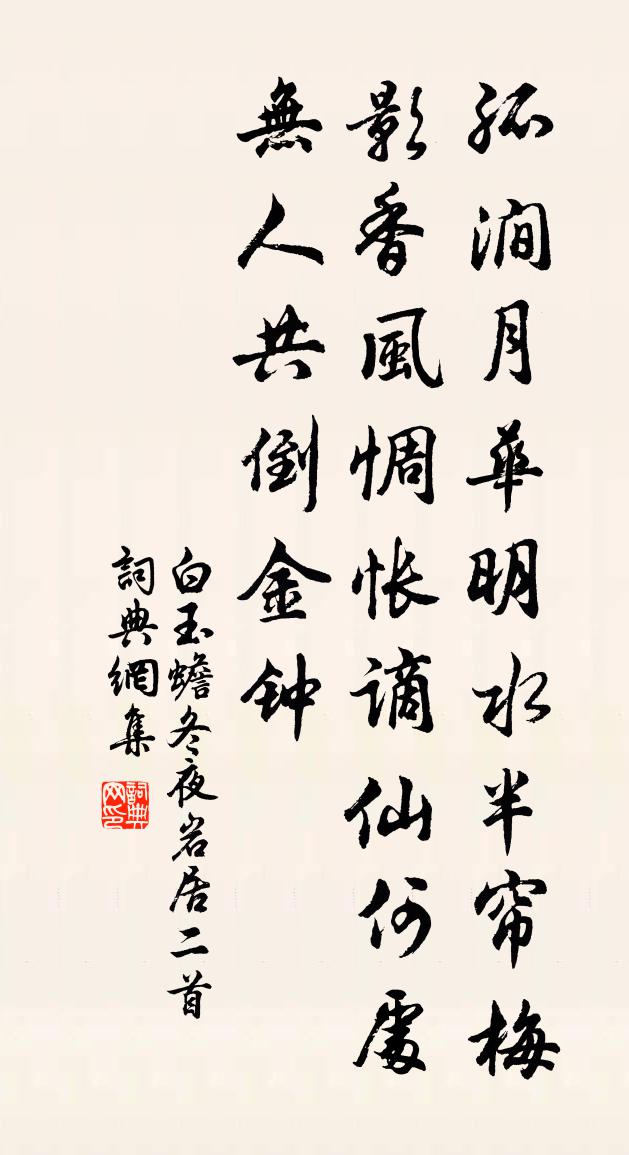 孤涧月華明水半帘梅
影香風惆怅謫仙何處
無人共倒金钟
白玉蟾冬夜岩居二首
詞典網集
詞典网印